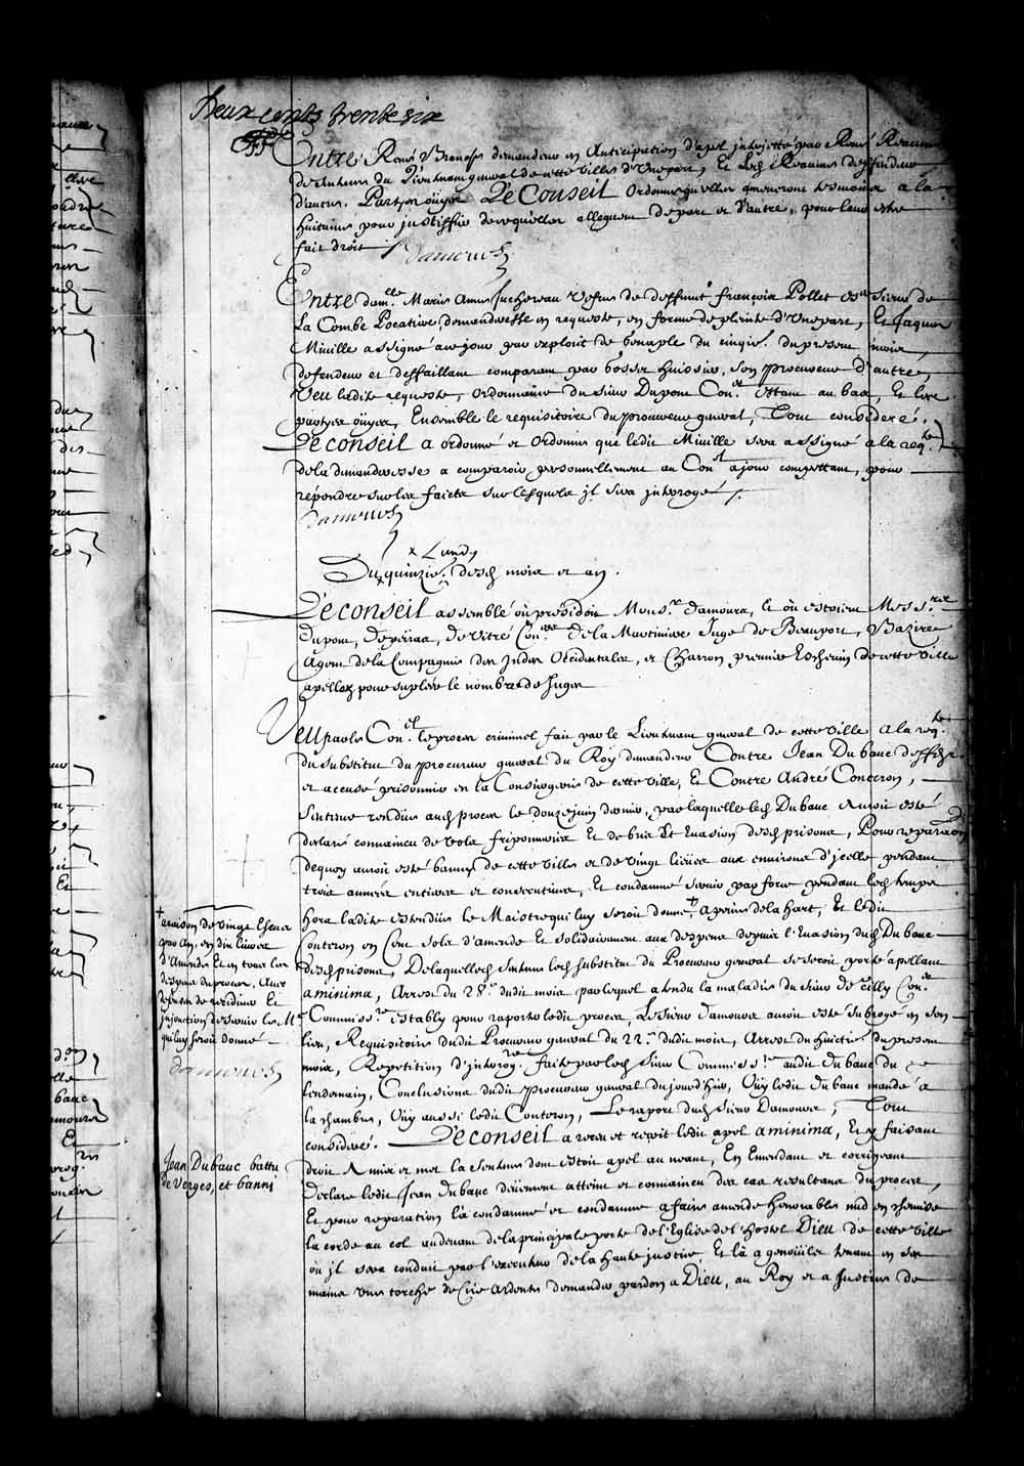 Deux cents trente six
Entre René Branche demandeur en Anticipation d'apel interjetté par René Reaume
de sentence du Lieutenant general de cette ville d'une part, Et led Reaume deffendeur
d'autre. Partyes oüyes Le Conseil Ordonne qu'elles ameneront tesmoins a la
huitaine pour justiffier de ce qu'elles alleguent de part et d'autre, pour leur estre
fait droit
Damours
Entre dam.lle Marie Anne Juchereau vefue de deffunt françois Pollet esc.r Sieur de
La Combe Pocatiere, demanderesse en requeste, en forme de plainte d'une part, Et Jaques
Miuille assigné a ce jour par exploit de Genaple du cinqie. du present mois,
defendeur et deffaillant comparant par Gosset huissier, son procureur d'autre,
Veu ladite requeste, ordonnance du Sieur Dupont Con.er estant au bas, Et les
partyes oüyes, Ensemble le requisitoire du procureur general, Tout consideré.
Le conseil a ordonné et Ordonne que ledit Miuille sera assigné a la req.te
de la demanderesse a comparoir personnellement au Con.el a jour competant, pour
répondre sur les faicts sur lesquels jl sera jnterogé
Damours
x Lundy
Du x quinzie. desd mois et an.
Le conseil assemblé où présidoit Mons.r Damours, Et où estoient Mess.rs
Dupont, Depeiras, De Vitré Con.ers De la Martiniere Juge de Beauport, Bazire
Agent de la Compagnie des Indes Occidentales, et Charron premier Eschevin de cette Ville
apellez pour supléer le nombre de Juges
Veu par le Con.el le proces criminel fait par le Lieutenant general de cette Ville a la req.te
du substitut du procureur general du Roy demandeur Contre Jean Dubauc deffendr
et accusé prisonnier en la Conciergerie de cette ville, Et Contre André Conteron,
Sentence rendüe aud proces le douze juin dernier, par laquelle led Dubauc auroit esté
declaré convaincu de vols friponneries Et de bris Et Euasion desd prisons, Pour reparation
dequoy auroit esté banny de cette ville et de vingt lieües aux environs d'jcelle pendant
trois années entieres et consecutives, Et condamné servir par force pendant led temps
hors ladite estendüe le Maistre qui luy seroit donné, + a peine de la hart, Et ledit
Conteron en Cent sols d'amende Et solidairement aux despens depuis l'Euasion dud Dubauc
desd prisons, De laquelle Sentence led substitut du Procureur general se seroit porté apellant
a minima, Arrest du 28.e dudit mois par lequel attendu la maladie du Sieur de Tilly Con.er
Commiss.re estably pour raporter ledit proces, Le Sieur Damours auroit esté subrogé en son
lieu, Requisitoire dudit Procureur general du 22.e dudit mois, Arrest du huictie. du present
mois, Repetition d'jnterog.re faite par led Sieur Commiss.re audit Dubauc du
lendemain, Conclusions dudit procureur general du jourd'huy, Oüy ledit Dubauc mandé a
la chambre, Oüy aussi ledit Conteron, Le raport dud Sieur Damours, Tout
consideré. Le conseil a receu et reçoit ledit apel a minima, Et y faisant
droit A mis et met la Sentence dont estoit apel au neant, En Emendant et corrigeant
Declare ledit Jean Dubauc düement atteint et convaincu des cas resultans du proces,
Et pour reparation l'a condamné et condamne a faire amende honorable nud en chemise
la corde au col audevant de la principale porte de l'Eglise de l'hostel Dieu de cette ville
où jl sera conduit par l'executeur de la haute justice Et là a genoüils tenant en ses
mains une torche de Cire ardente demander pardon a Dieu, au Roy et a Justice de
+ a raison de vingt Escus
par An, en dix livres
d'Amende Et en tous les
despens du proces, Avec
defenses de recidiver Et
jnjonction de servir le M.e
qui luy seroit donné
Damours
Jean Dubauc battu
de Verges, et banni